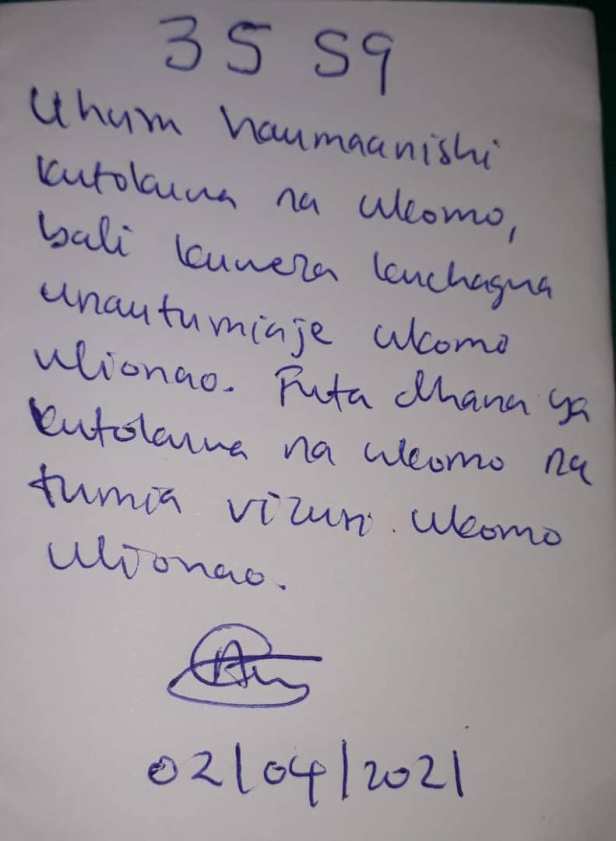 3559
Uhuru haumaanishi
kutokuwa na ukomo,
bali kuweza kuchagua
unautumiaje ukomo
ulionao. Futa dhana ya
kutokuwa na ukomo na
tumia vizuri ukomo
ulionao.
02/04/2021